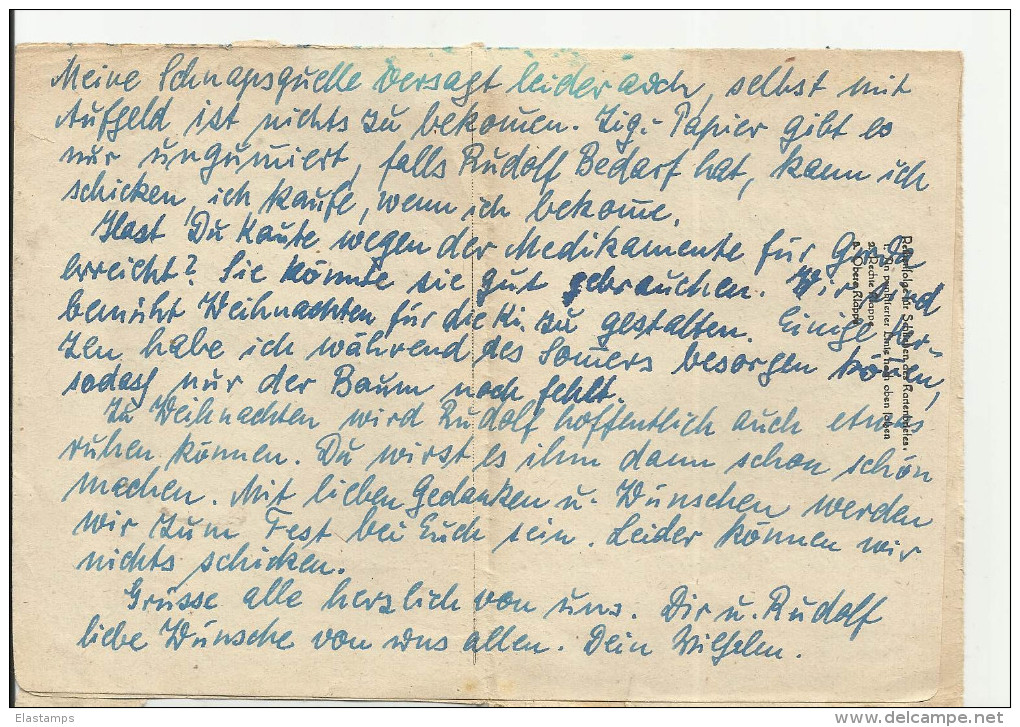 Meine Schnapsquelle versagt leider auch, selbst mit
Aufgeld ist nichts zu bekom̄en. Zig.-Papier gibt es
nur ungum̄iert, falls Rudolf Bedarf hat, kann ich
schicken, ich kaufe, wenn ich bekom̄e.
Hast Du Kaute wegen der Medikamente für
erreicht? Sie könnte sie gut gebrauchen. Wir sind
bemüht Weihnachten für die Ki. zu gestalten. Einige Ker-
zen habe ich während des Som̄ers besorgen kön̄en,
sodass nur der Baum noch fehlt.
Zu Weihnachten wird Rudolf hoffentlich auch etwas
ruhen können. Du wirst es ihm dann schon schön
machen. Mit lieben Gedanken u. Wünschen werden
wir zum Fest bei Euch sein. Leider können wir
nichts schicken.
Grüsse alle herzlich von uns. Dir u. Rudolf
liebe Wünsche von uns allen. Dein Wilhelm.
Reihenfolge für Schließen des Kartenbriefes.
1. An punktierter Linie nach oben falten
2. Rechte Klappe
3. Obere Klappe
Elastamps
www.delcampe.net